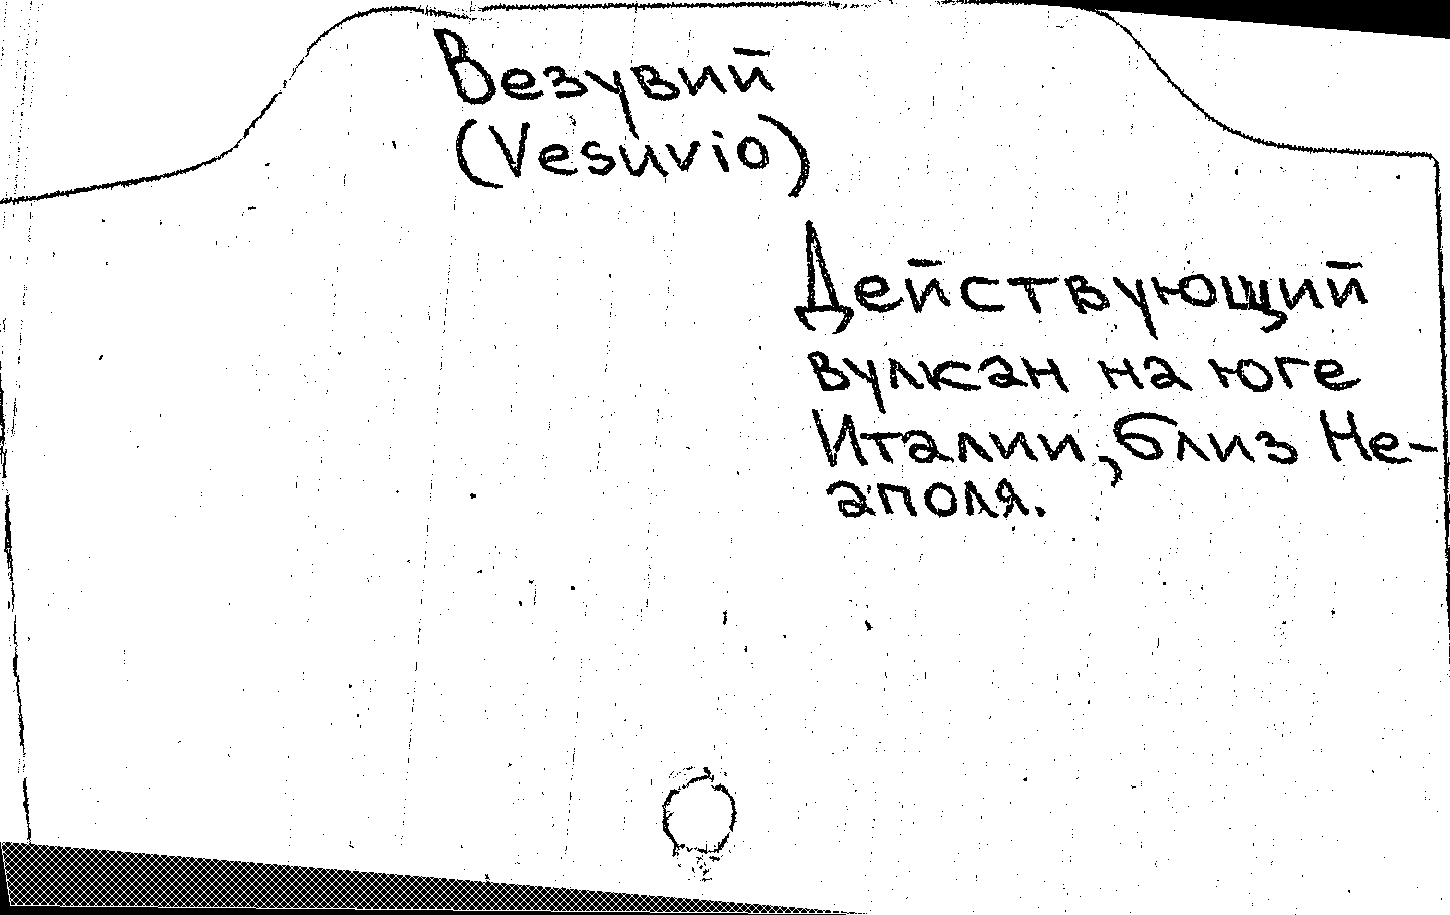 Везувий
(Vesuvio)
Действующий
вулкан на юге
Италии, близ Не-
аполя.